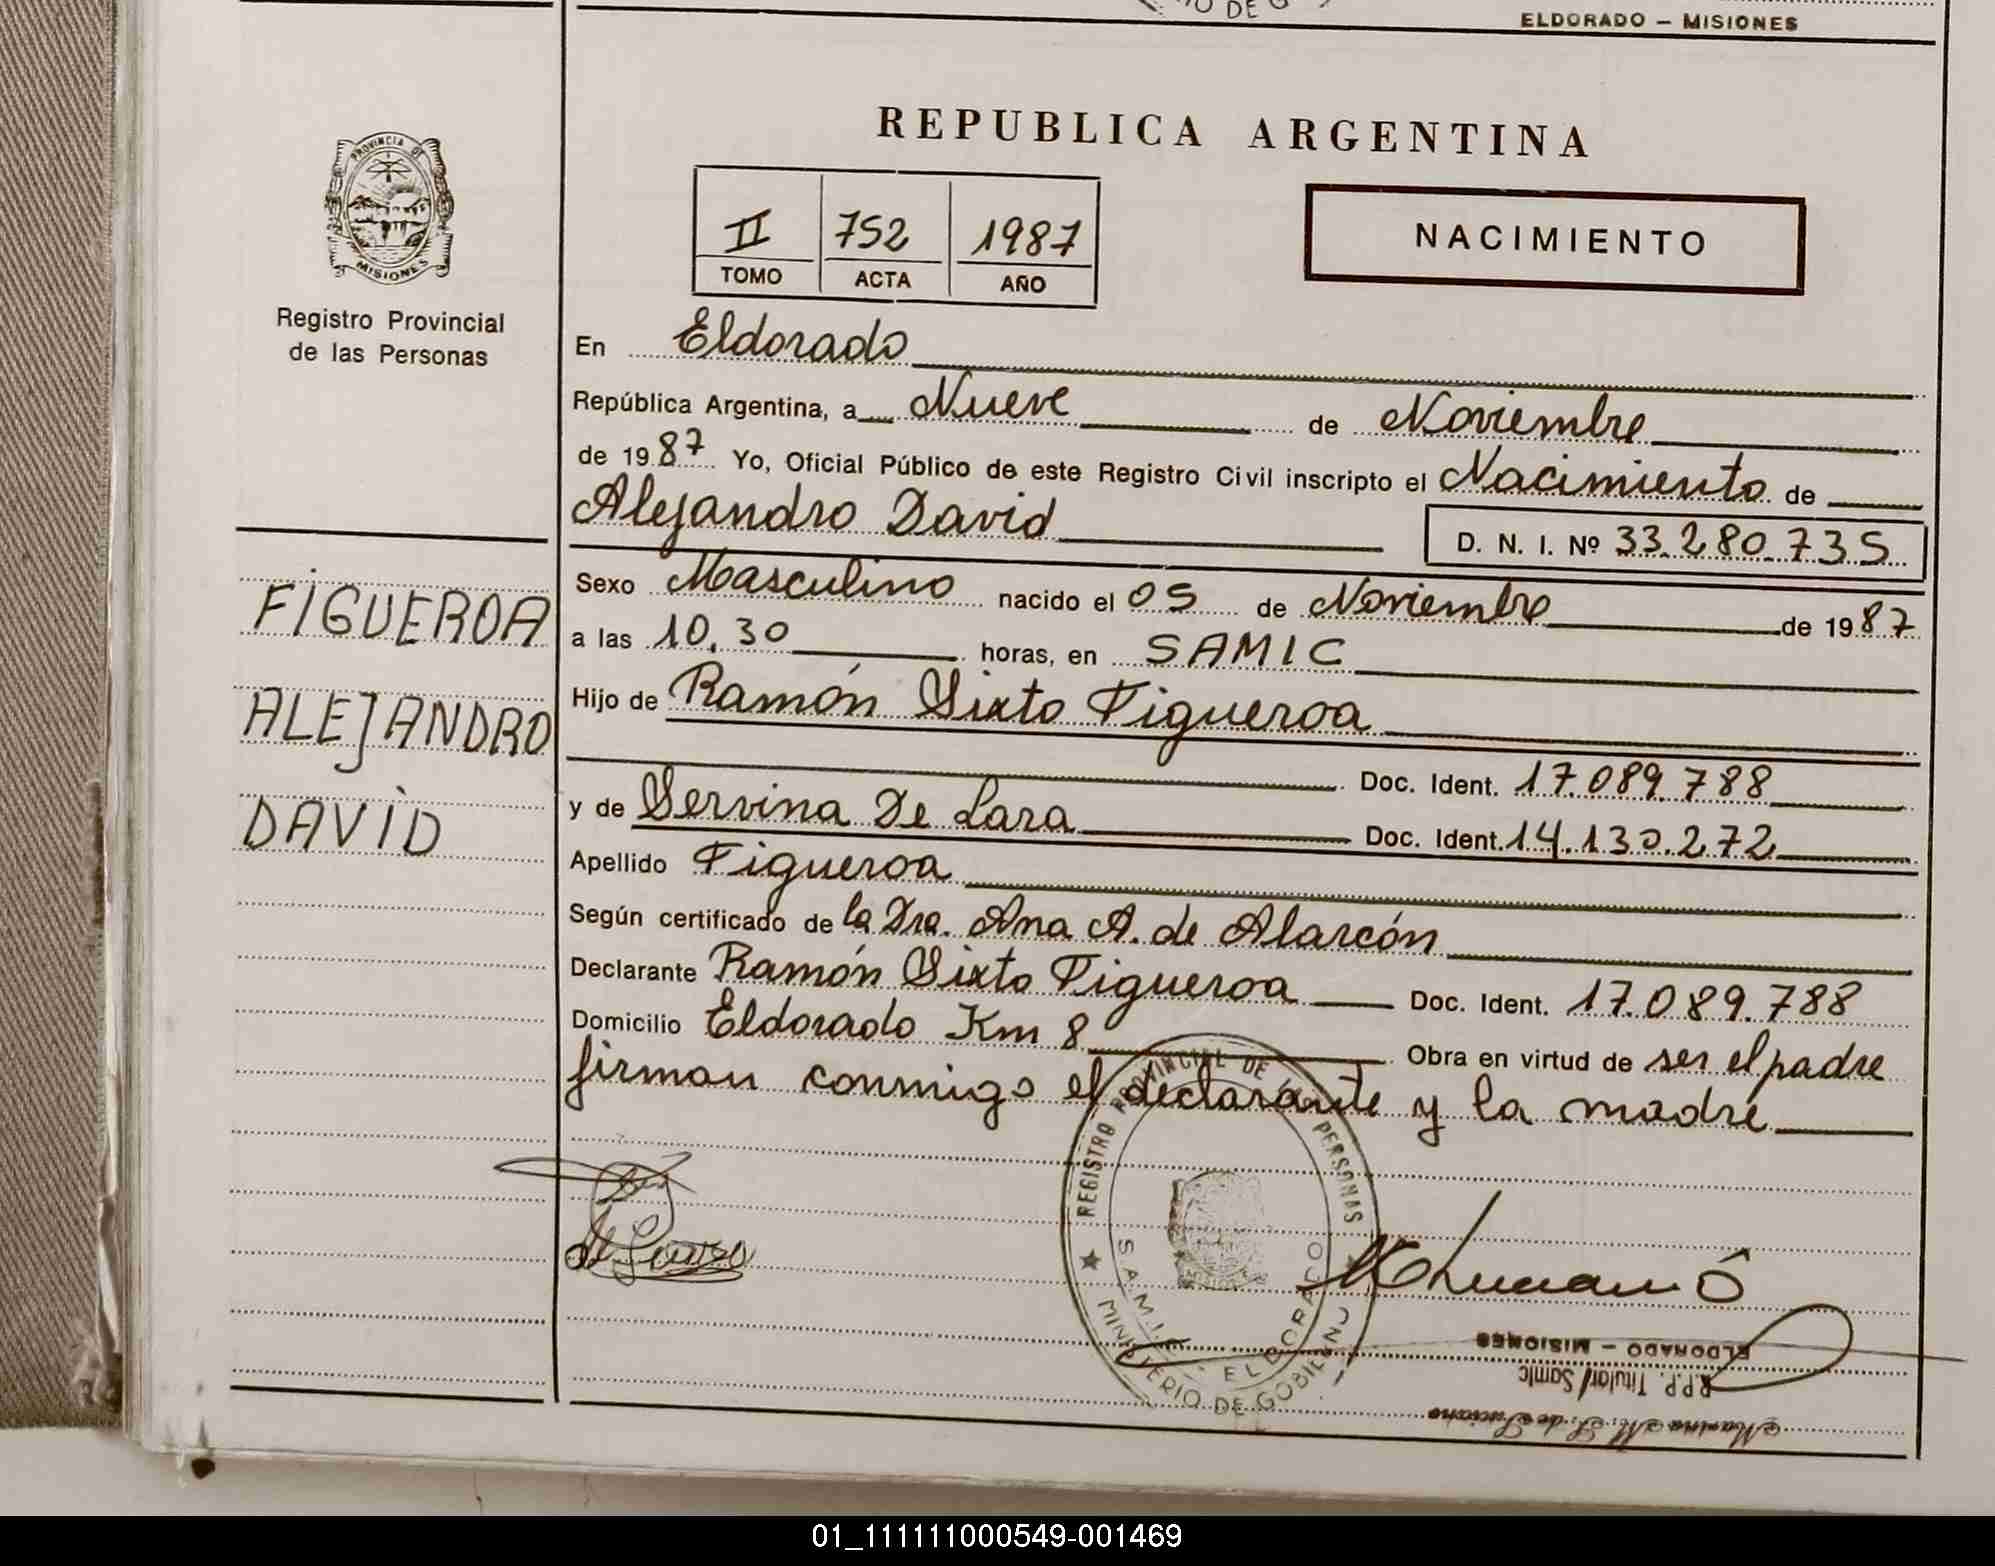 ELDORADO – MISIONES
REPUBLICA ARGENTINA
II 752 1987
TOMO ACTA AÑO
NACIMIENTO
PROVINCIA DE
MISIONES
Registro Provincial
de las Personas
En Eldorado
República Argentina, a Nueve de Noviembre
de 1987 Yo, Oficial Público de este Registro Civil inscripto el Nacimiento de
Alejandro David D. N. I. Nº 33.280.735
Sexo Masculino nacido el 05 de Noviembre de 1987
a las 10,30 horas, en SAMIC
Hijo de Ramón Sixto Figueroa
Doc. Ident. 17.089.788
y de Servina De Lara Doc. Ident. 14.130.272
Apellido Figueroa
Según certificado de la Dra. Ana A. de Alarcón
Declarante Ramón Sixto Figueroa Doc. Ident. 17.089.788
Domicilio Eldorado Km 8 Obra en virtud de ser el padre
firman conmigo el declarante y la madre
FIGUEROA
ALEJANDRO
DAVID
REGISTRO PROVINCIAL DE LAS PERSONAS
S.A.M.I.C. ELDORADO
MINISTERIO DE GOBIERNO
ELDORADO – MISIONES
R.P.P. Titular/Samic
01_111111000549-001469